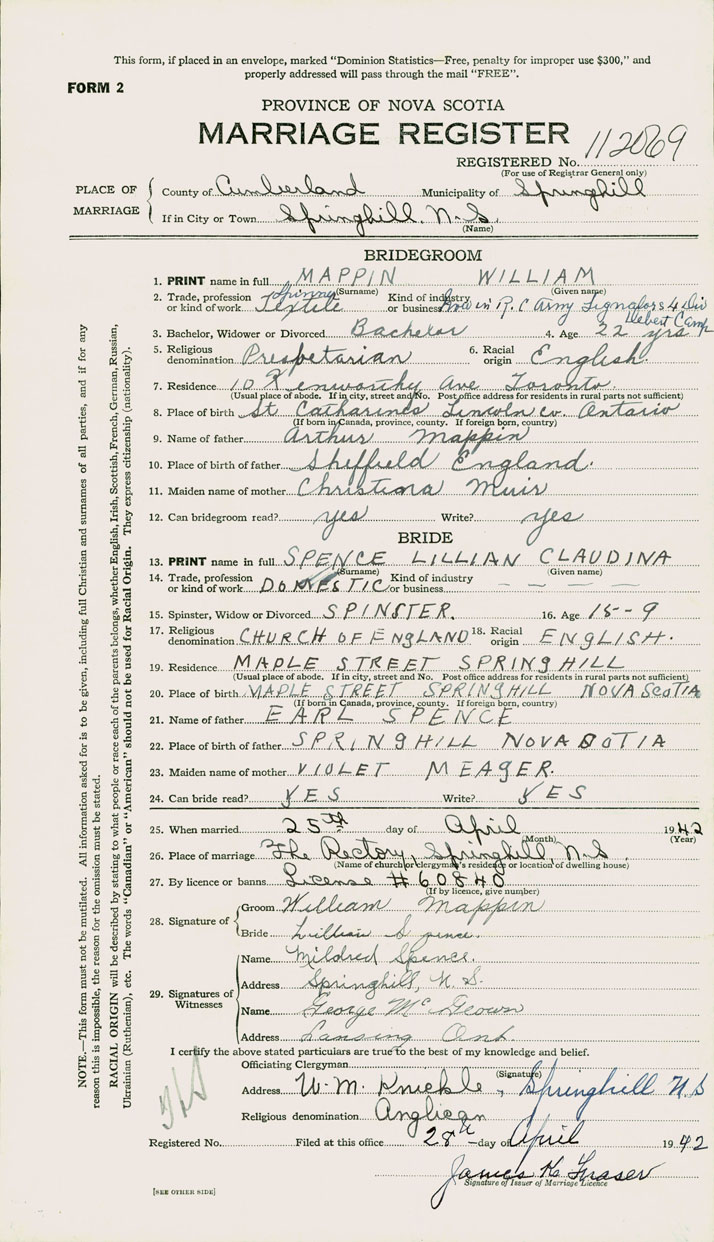 This form, if placed in an envelope, marked "Dominion Statistics—Free, penalty for improper use $300," and
properly addressed will pass through the mail "FREE".
FORM 2
PROVINCE OF NOVA SCOTIA
MARRIAGE REGISTER
REGISTERED No. 112069
(For use of Registrar General only)
PLACE OF MARRIAGE
County of Cumberland Municipality of Springhill
If in City or Town Springhill. N.S.
(Name)
BRIDEGROOM
1. PRINT name in full MAPPIN WILLIAM
(Surname) (Given name)
2. Trade, profession or kind of work Textile Kind of industry or business Now in R.C Army Signals 4 Div
Debert Camp
3. Bachelor, Widower or Divorced Bachelor 4. Age 22 yrs
5. Religious denomination Presbetarian 6. Racial origin English.
7. Residence 10 Kenworthy Ave Toronto
(Usual place of abode. If in city, street and No. Post office address for residents in rural parts not sufficient)
8. Place of birth St Catharines Lincoln co. Ontario
(If born in Canada, province, county. If foreign born, country)
9. Name of father Arthur Mappin
10. Place of birth of father Sheffield England.
11. Maiden name of mother Christina Muir
12. Can bridegroom read? yes Write? yes
BRIDE
13. PRINT name in full SPENCE LILLIAN CLAUDINA
(Surname) (Given name)
14. Trade, profession or kind of work DOMESTIC Kind of industry or business — — — —
15. Spinster, Widow or Divorced SPINSTER. 16. Age 18-9
17. Religious denomination CHURCH OF ENGLAND 18. Racial origin ENGLISH.
19. Residence MAPLE STREET SPRINGHILL
(Usual place of abode. If in city, street and No. Post office address for residents in rural parts not sufficient)
20. Place of birth MAPLE STREET SPRINGHILL NOVA SCOTIA
(If born in Canada, province, county. If foreign born, country)
21. Name of father EARL SPENCE
22. Place of birth of father SPRINGHILL NOVA SOTIA
23. Maiden name of mother VIOLET MEAGER.
24. Can bride read? YES Write? YES
25. When married 25th day of April 1942
(Month) (Year)
26. Place of marriage The Rectory, Springhill, N.S.
(Name of church or clergyman's residence or location of dwelling house)
27. By licence or banns License # 60840
(If by licence, give number)
28. Signature of
Groom William Mappin
Bride Lillian Spence.
29. Signatures of Witnesses
Name Mildred Spence.
Address Springhill, N.S.
Name George McGeown
Address Lansing Ont.
I certify the above stated particulars are true to the best of my knowledge and belief.
Officiating Clergyman
(Signature)
Address W. M. Knickle, Springhill N.S
Religious denomination Anglican
Registered No. Filed at this office 28th day of April 1942
James K. Fraser
Signature of Issuer of Marriage Licence
[SEE OTHER SIDE]
NOTE.—This form must not be mutilated. All information asked for is to be given, including full Christian and surnames of all parties, and if for any
reason this is impossible, the reason for the omission must be stated.
RACIAL ORIGIN will be described by stating to what people or race each of the parents belongs, whether English, Irish, Scottish, French, German, Russian,
Ukrainian (Ruthenian), etc. The words "Canadian" or "American" should not be used for Racial Origin. They express citizenship (nationality).